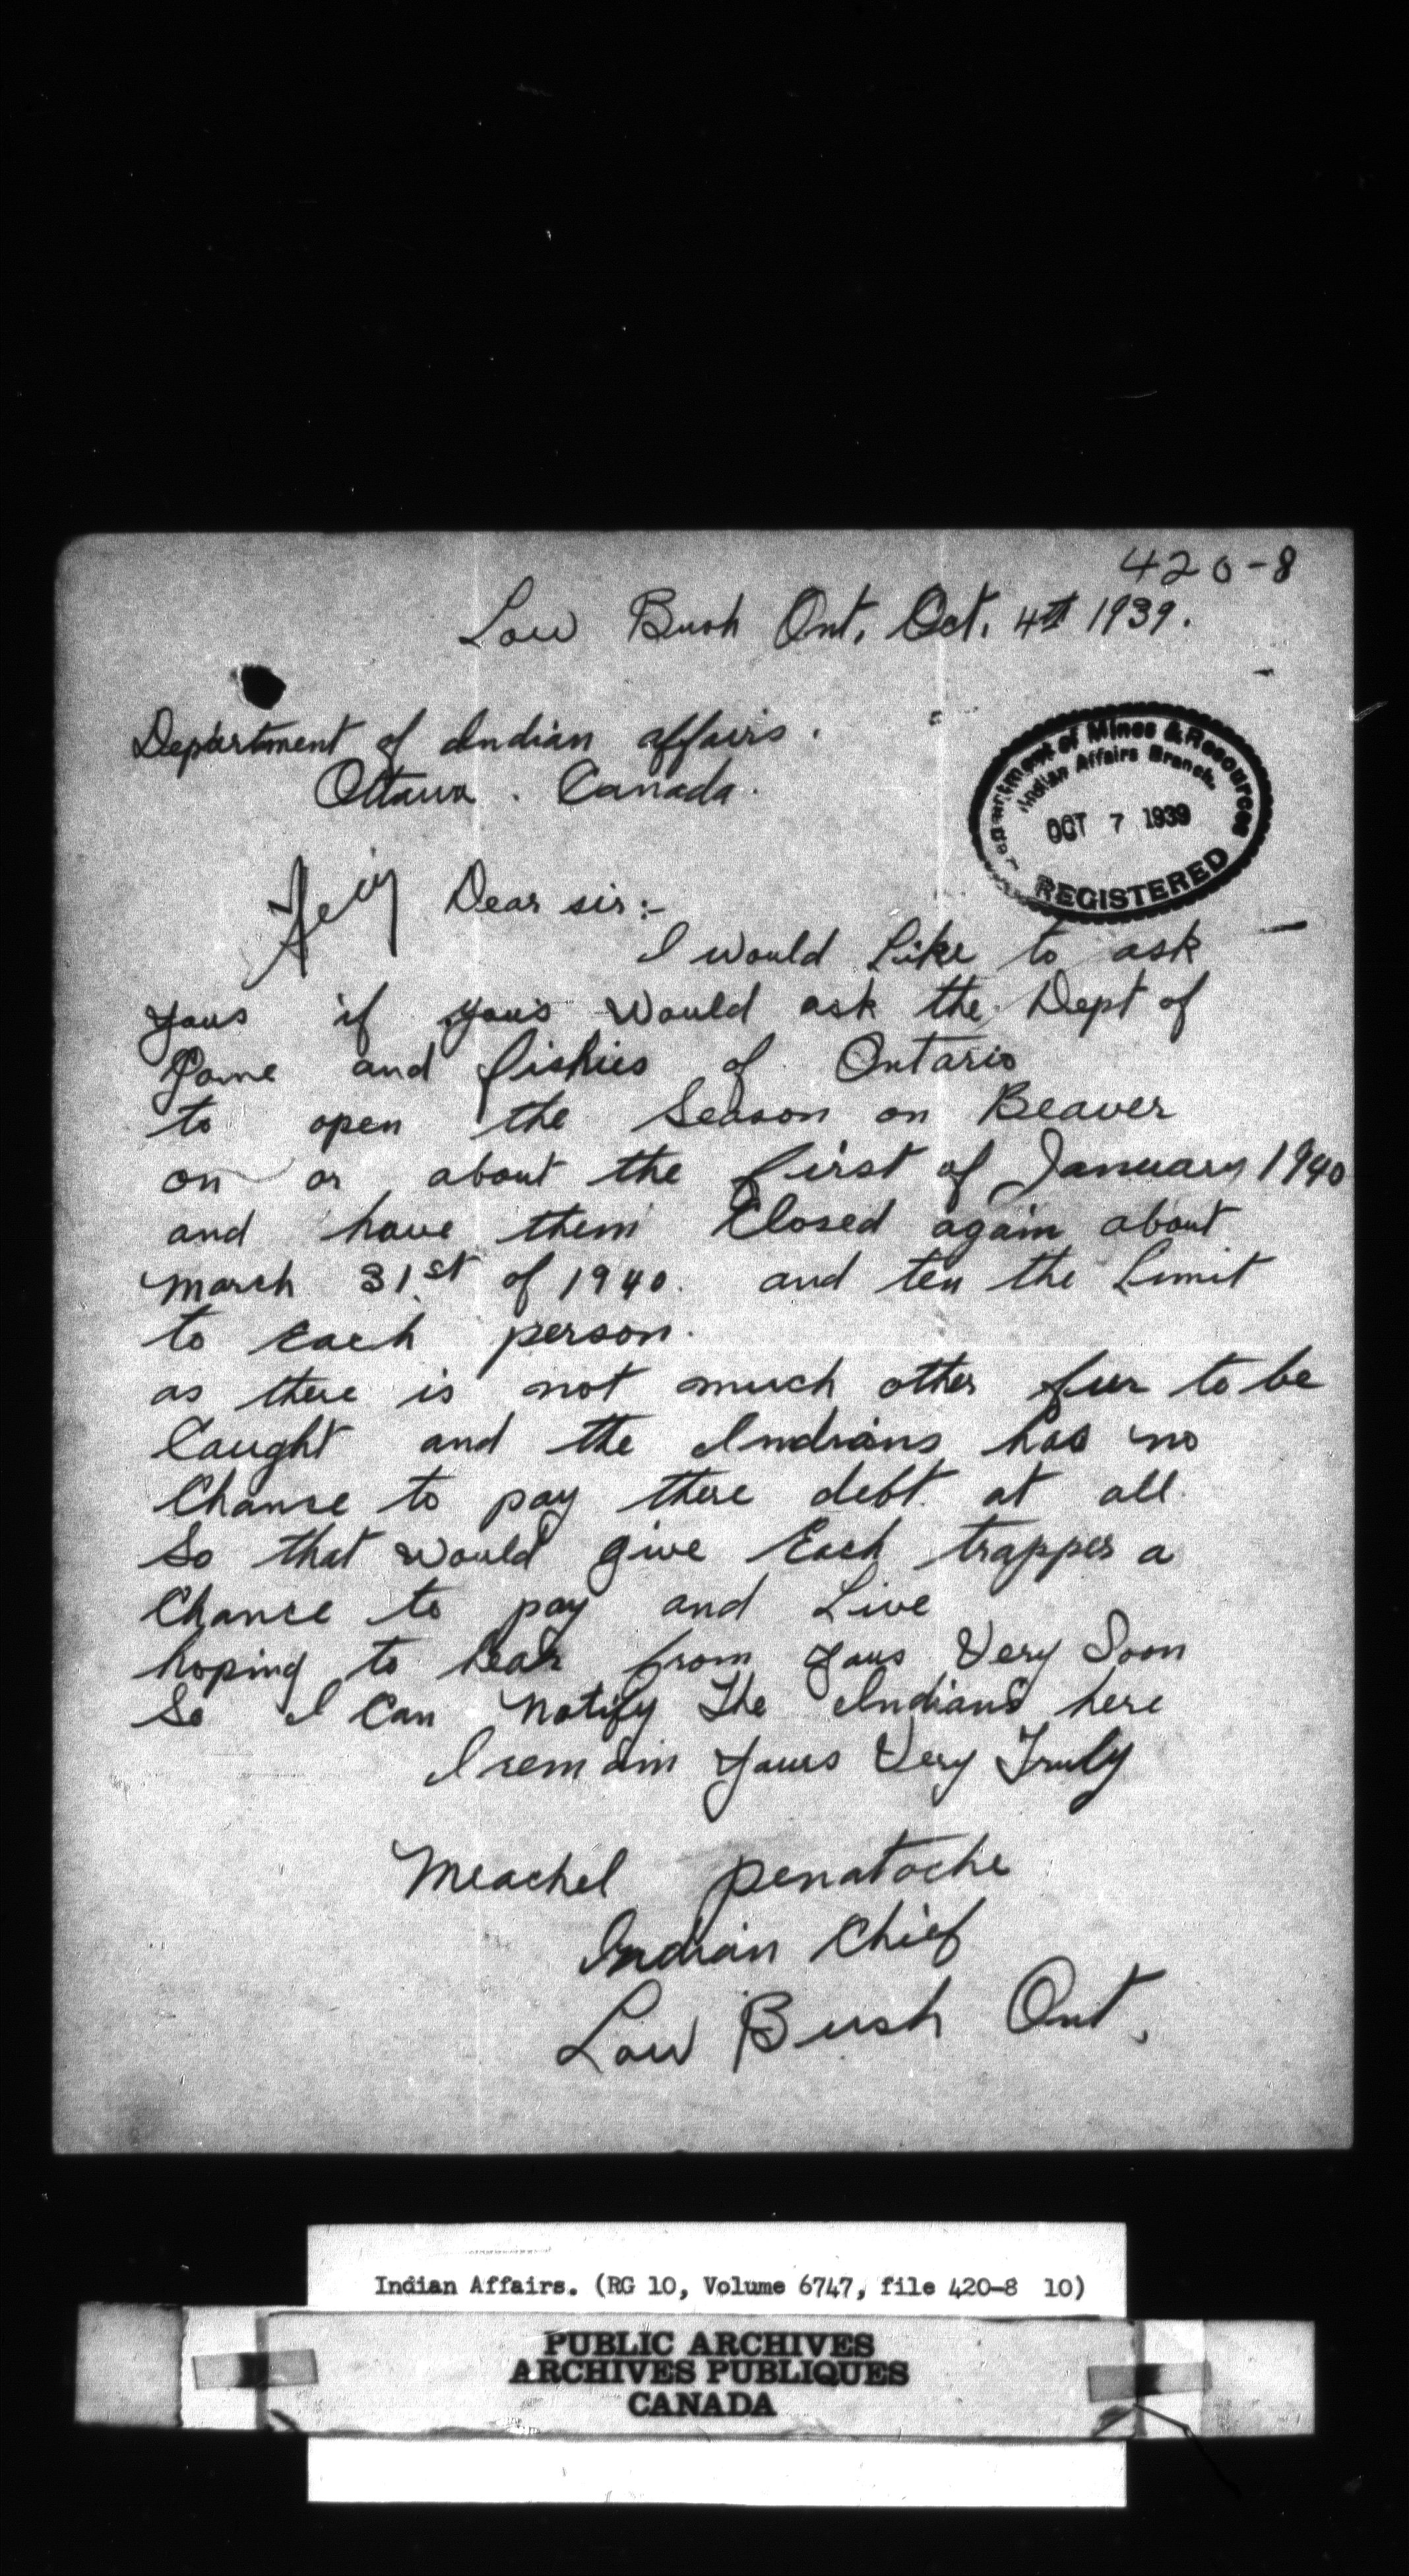 420-8
Low Bush Ont. Oct. 4th 1939.
Department of Indian affairs.
Ottawa. Canada.
Department of Mines & Resources
Indian Affairs Branch
OCT 7 1939
REGISTERED
Dear sir:-
I would Like to ask
yous if yous would ask the Dept of
Game and fishies of Ontario
to open the Season on Beaver
on or about the first of January 1940
and have them Closed again about
March 31st of 1940. and ten the Limit
to each person.
as there is not much other fur to be
Caught and the Indians has no
Chance to pay there debt at all.
So that would give Each trapper a
Chance to pay and Live
hoping to hear from yous Very Soon
So I Can Notify The Indians here
I remain yours Very Truly
Meachel penatoche
Indian Chief
Low Bush Ont.
Indian Affairs. (RG 10, Volume 6747, file 420-8 10)
PUBLIC ARCHIVES
ARCHIVES PUBLIQUES
CANADA